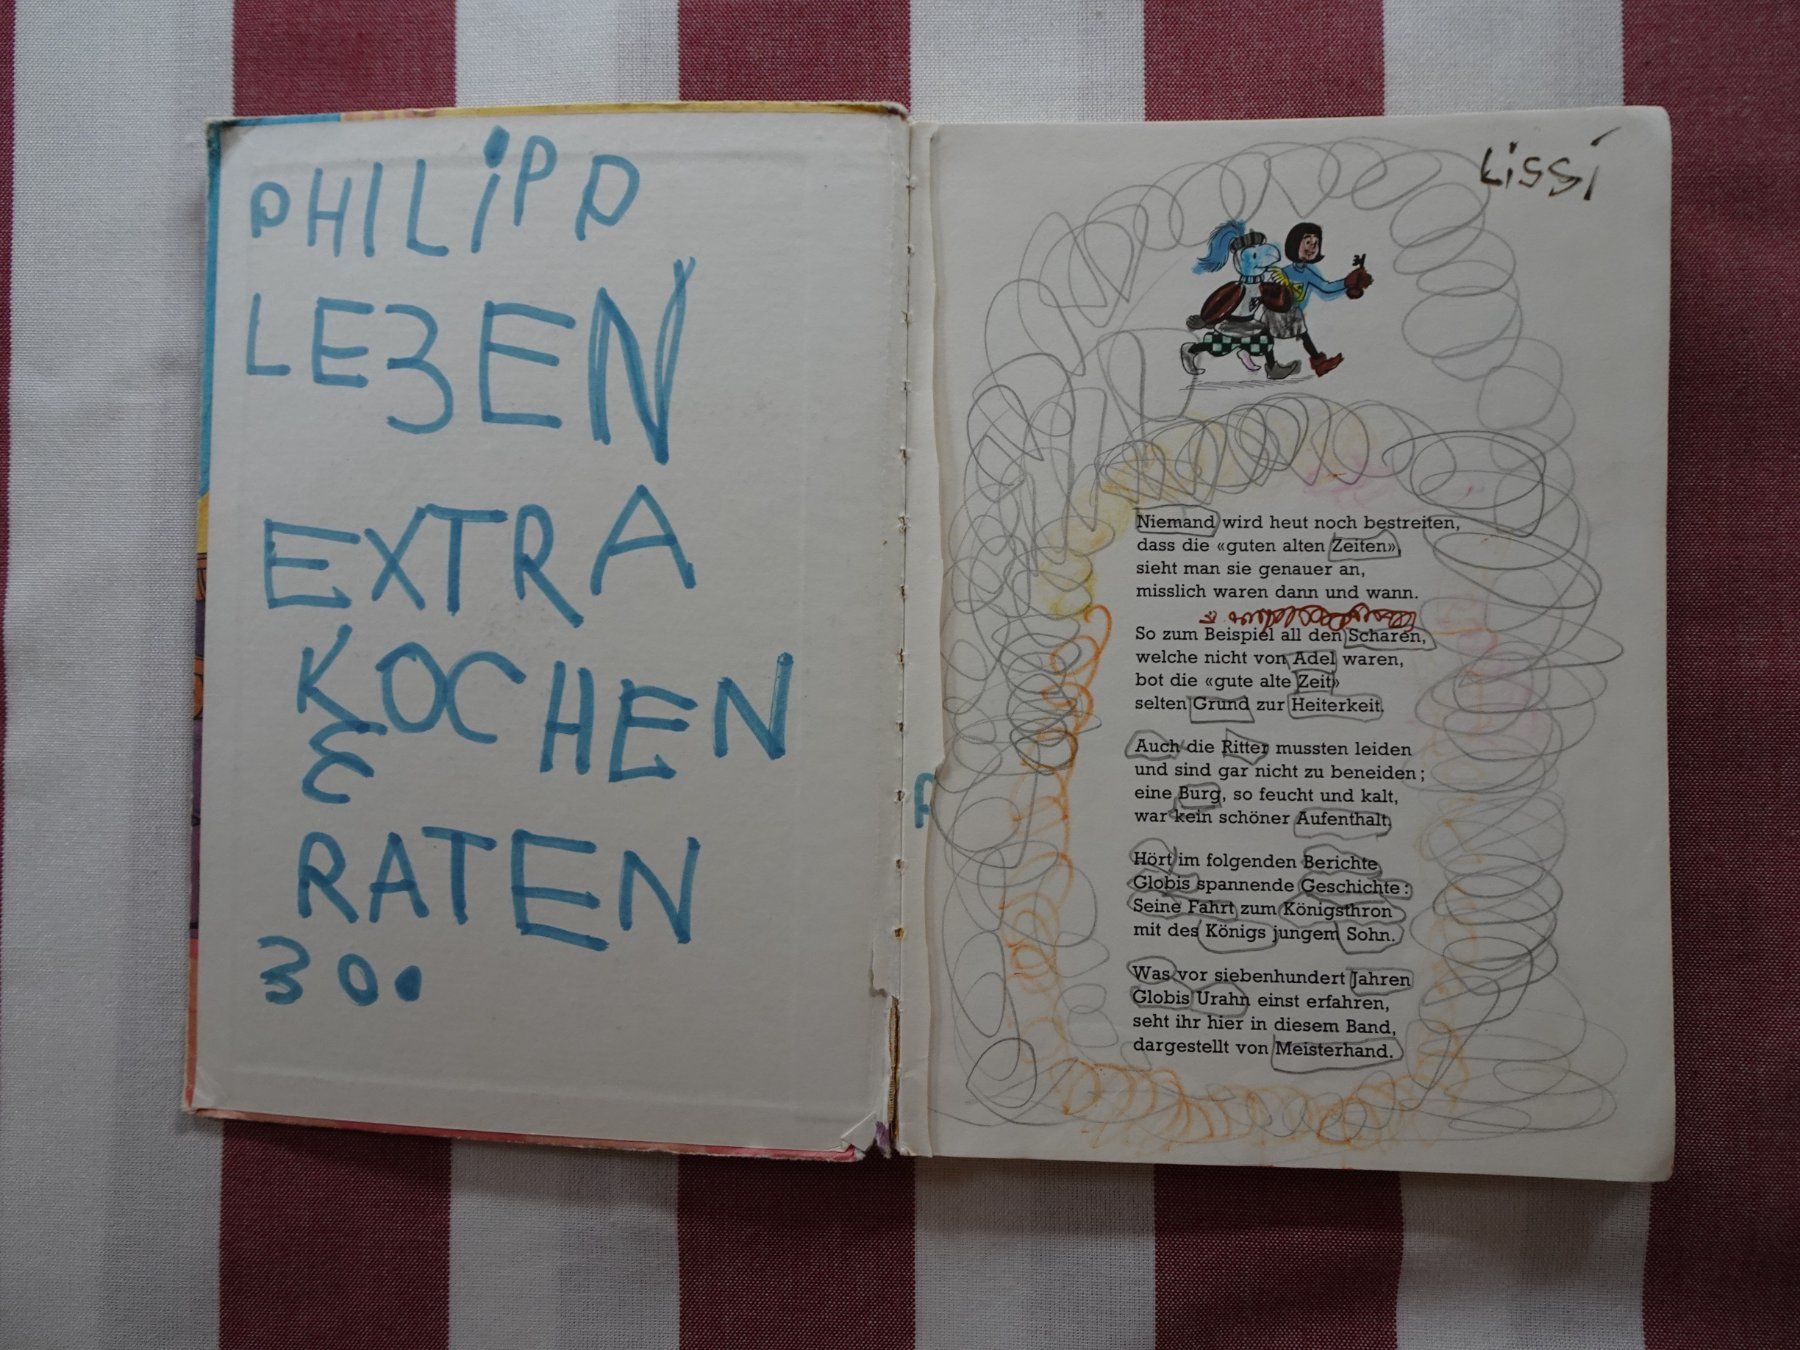 PHILiPP
LEZEN
EXTRA
KOCHEN
&
RATEN
30.
Lissi
Niemand wird heut noch bestreiten,
dass die «guten alten Zeiten»,
sieht man sie genauer an,
misslich waren dann und wann.
So zum Beispiel all den Scharen,
welche nicht von Adel waren,
bot die «gute alte Zeit»
selten Grund zur Heiterkeit.
Auch die Ritter mussten leiden
und sind gar nicht zu beneiden;
eine Burg, so feucht und kalt,
war kein schöner Aufenthalt.
Hört im folgenden Berichte
Globis spannende Geschichte:
Seine Fahrt zum Königsthron
mit des Königs jungem Sohn.
Was vor siebenhundert Jahren
Globis Urahn einst erfahren,
seht ihr hier in diesem Band,
dargestellt von Meisterhand.